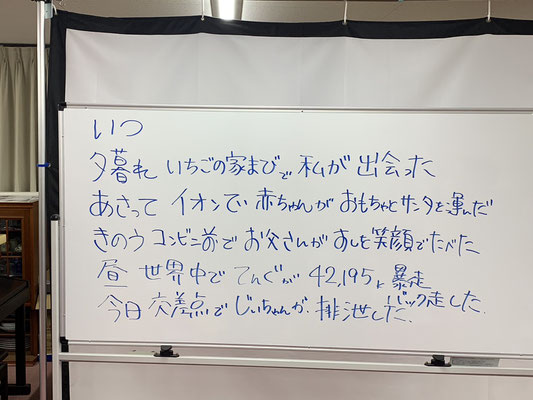 いつ
夕暮れ いちごの家まびで 私が 出会った
あさって イオンでい 赤ちゃんが おもちゃとサンタを運んだ
きのう コンビニ前で お父さんが あしを笑顔でたべた
昼 世界中で てんぐが 42,195k 暴走
バック走した.
今日 交差点で じいちゃんが、排泄した.